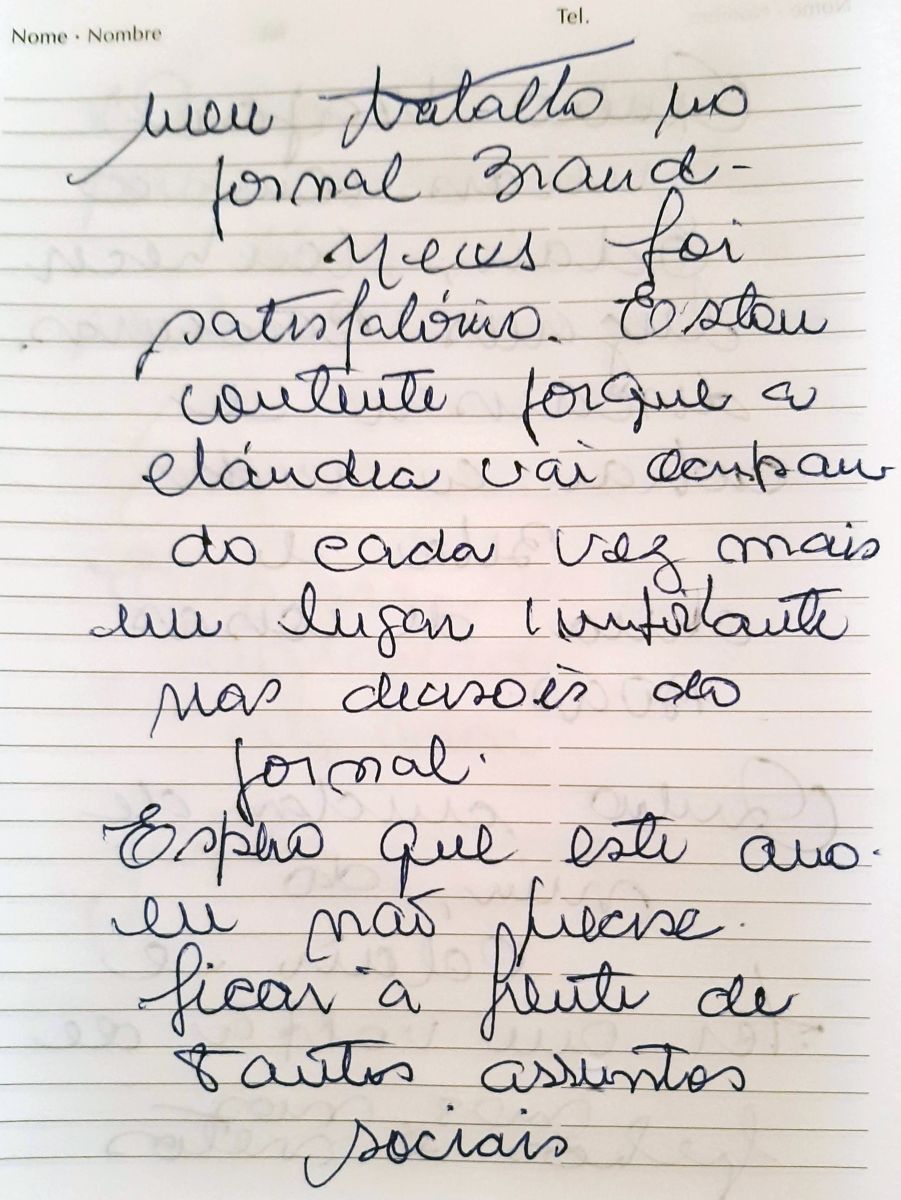 Nome · Nombre
Tel.
meu trabalho no
jornal Brand-
News foi
satisfatório. Estou
contente porque a
Cláudia vai ocupan-
do cada vez mais
um lugar importante
nas decisões do
jornal.
Espero que este ano
eu não precise
ficar à frente de
tantos assuntos
sociais